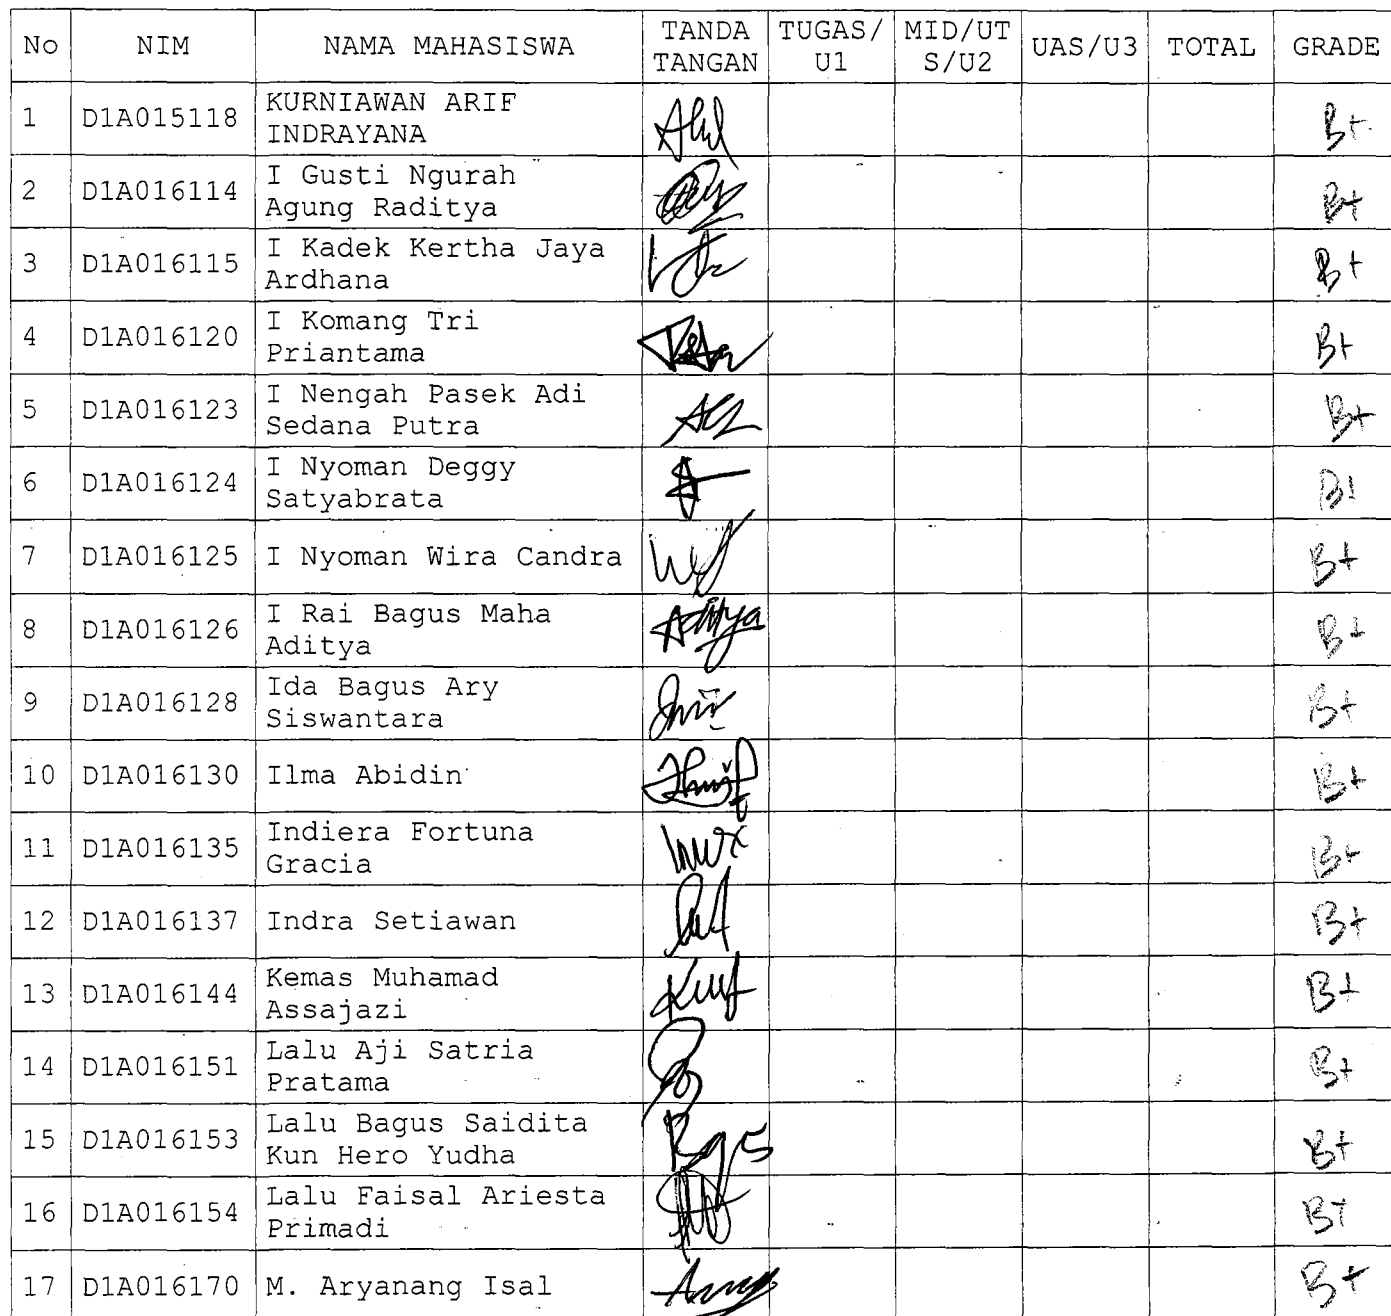 No NIM NAMA MAHASISWA TANDA TANGAN TUGAS/U1 MID/UTS/U2 UAS/U3 TOTAL GRADE
1 D1A015118 KURNIAWAN ARIF B+
INDRAYANA
2 D1A016114 I Gusti Ngurah B+
Agung Raditya
3 D1A016115 I Kadek Kertha Jaya B+
Ardhana
4 D1A016120 I Komang Tri B+
Priantama
5 D1A016123 I Nengah Pasek Adi B+
Sedana Putra
6 D1A016124 I Nyoman Deggy
Satyabrata
7 D1A016125 I Nyoman Wira Candra B+
8 D1A016126 I Rai Bagus Maha Aditya B+
Aditya
9 D1A016128 Ida Bagus Ary B+
Siswantara
10 D1A016130 Ilma Abidin B+
11 D1A016135 Indiera Fortuna B+
Gracia
12 D1A016137 Indra Setiawan B+
13 D1A016144 Kemas Muhamad B+
Assajazi
14 D1A016151 Lalu Aji Satria B+
Pratama
15 D1A016153 Lalu Bagus Saidita B+
Kun Hero Yudha
16 D1A016154 Lalu Faisal Ariesta B+
Primadi
17 D1A016170 M. Aryanang Isal B+